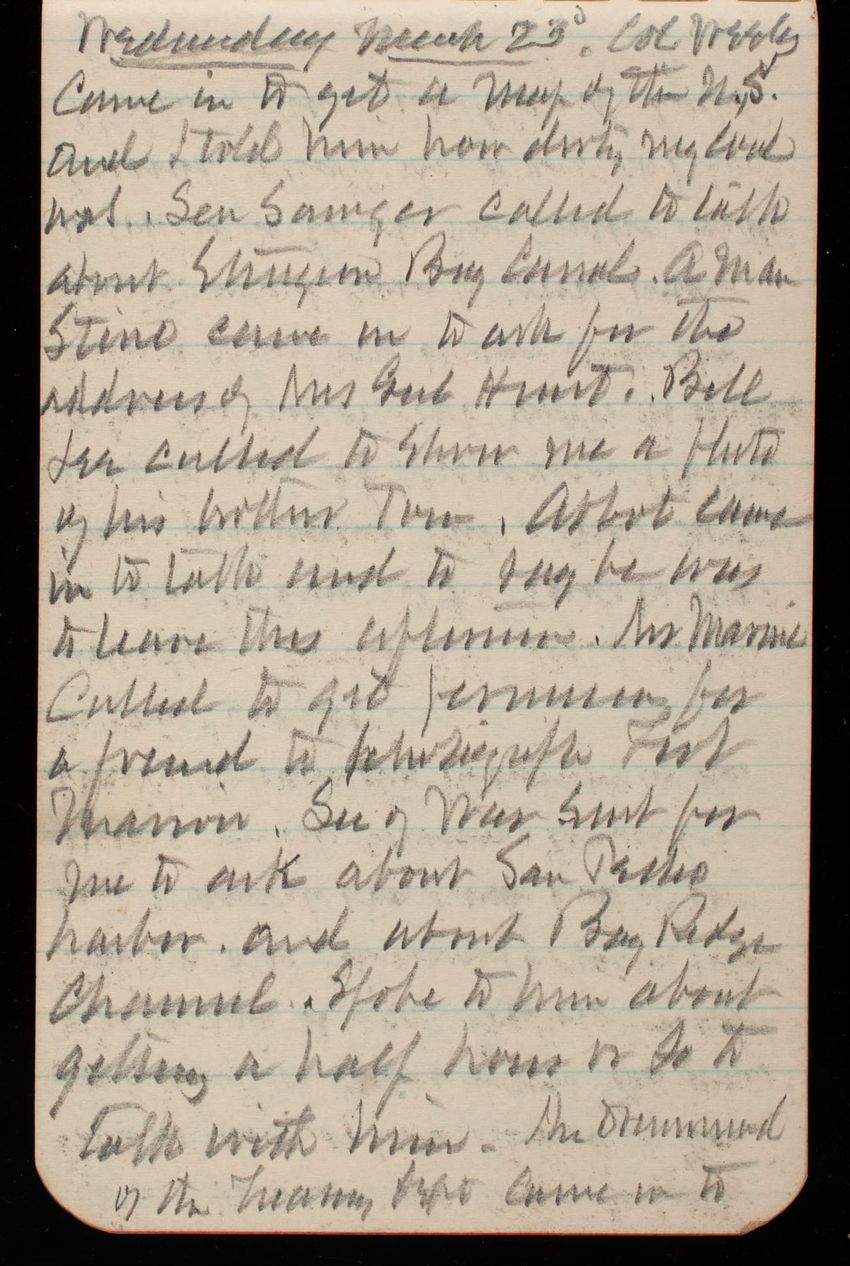 Wednesday March 23d. Col Weeks
Came in to get a map of the U.S.
and I told him how dirty my coal
was. Sen Sawyer called to talk
about Sturgeon Bay Canal. A man
Stine came in to ask for the
address of Mrs Hunt. Bill
Lee called to show me a photo
of his brother Tom. Abbot came
in to talk and to say he was
to leave this afternoon. Mr
Called to get permission for
a friend to photograph Fort
Marion. Sec of War sent for
me to ask about San Pedro
harbor. and about Bay Ridge
Channel. Spoke to him about
getting a half hour or so to
talk with him. Mr Drummond
of the Treasury Dept came in to